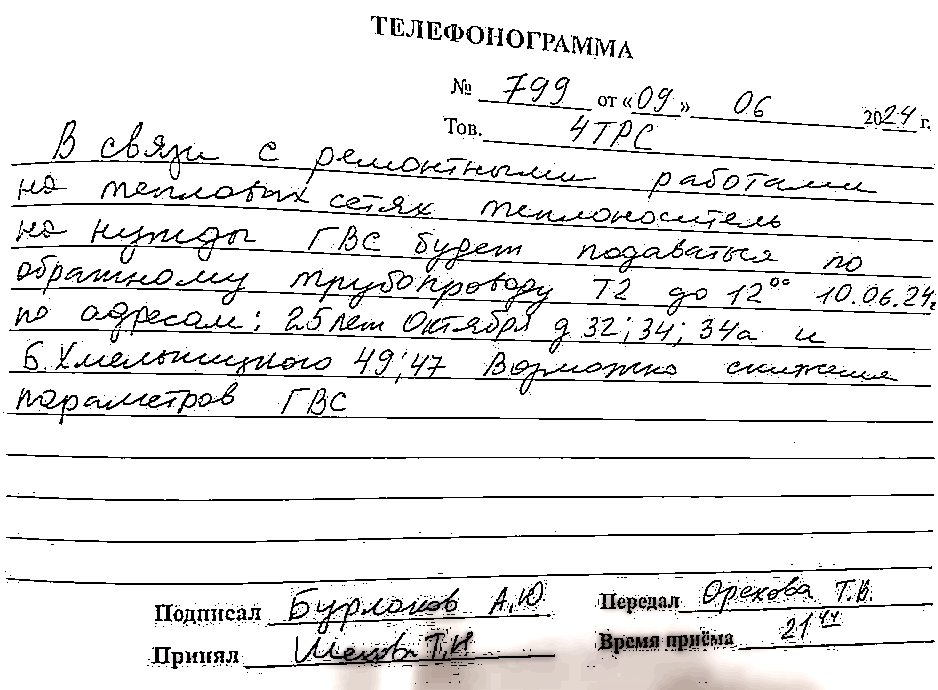 ТЕЛЕФОНОГРАММА
№ 799 от «09» 06 2024 г.
Тов. 4 ТРС
В связи с ремонтными работами
на тепловых сетях теплоноситель
на нужды ГВС будет подаваться по
обратному трубопроводу Т2 до 12⁰⁰ 10.06.24г
по адресам: 25 лет Октября д 32; 34; 34а и
Б. Хмельницкого 49; 47 Возможно снижение
параметров ГВС
Подписал Бурлаков А.Ю Передал Орехова Т.В.
Принял Т.И Время приёма 21⁴⁴